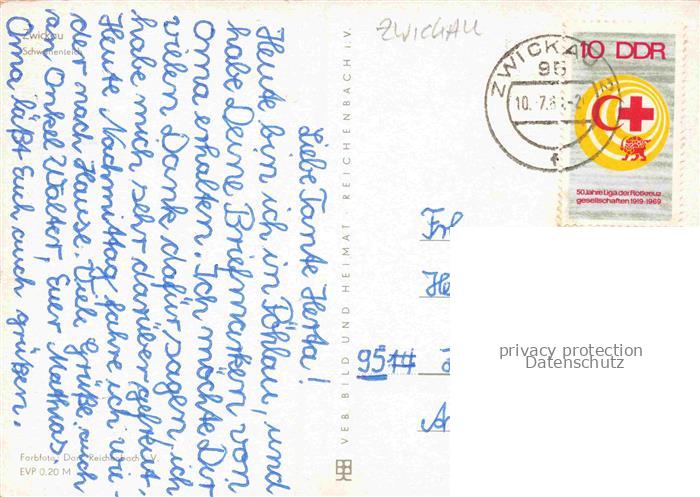 Zwickau
Schwanenteich
Liebe Tante Herta!
Heute bin ich in Pöhlau, und
habe Deine Briefmarken von
Oma erhalten. Ich möchte Dir
vielen Dank dafür sagen, ich
habe mich sehr darüber gefreut.
Heute Nachmittag fahre ich wie-
der nach Hause. Viele Grüße auch
an Onkel Walter, Euer Mathias
Oma läßt Euch auch grüßen.
Reichenbach i. V.
EVP 0.20 M
VEB BILD UND HEIMAT · REICHENBACH i. V.
ZWICKAU
ZWICKAU
95
10.-7.6
10 DDR
50 Jahre Liga der Rotkreuz
gesellschaften 1919-1969
95
privacy protection
Datenschutz